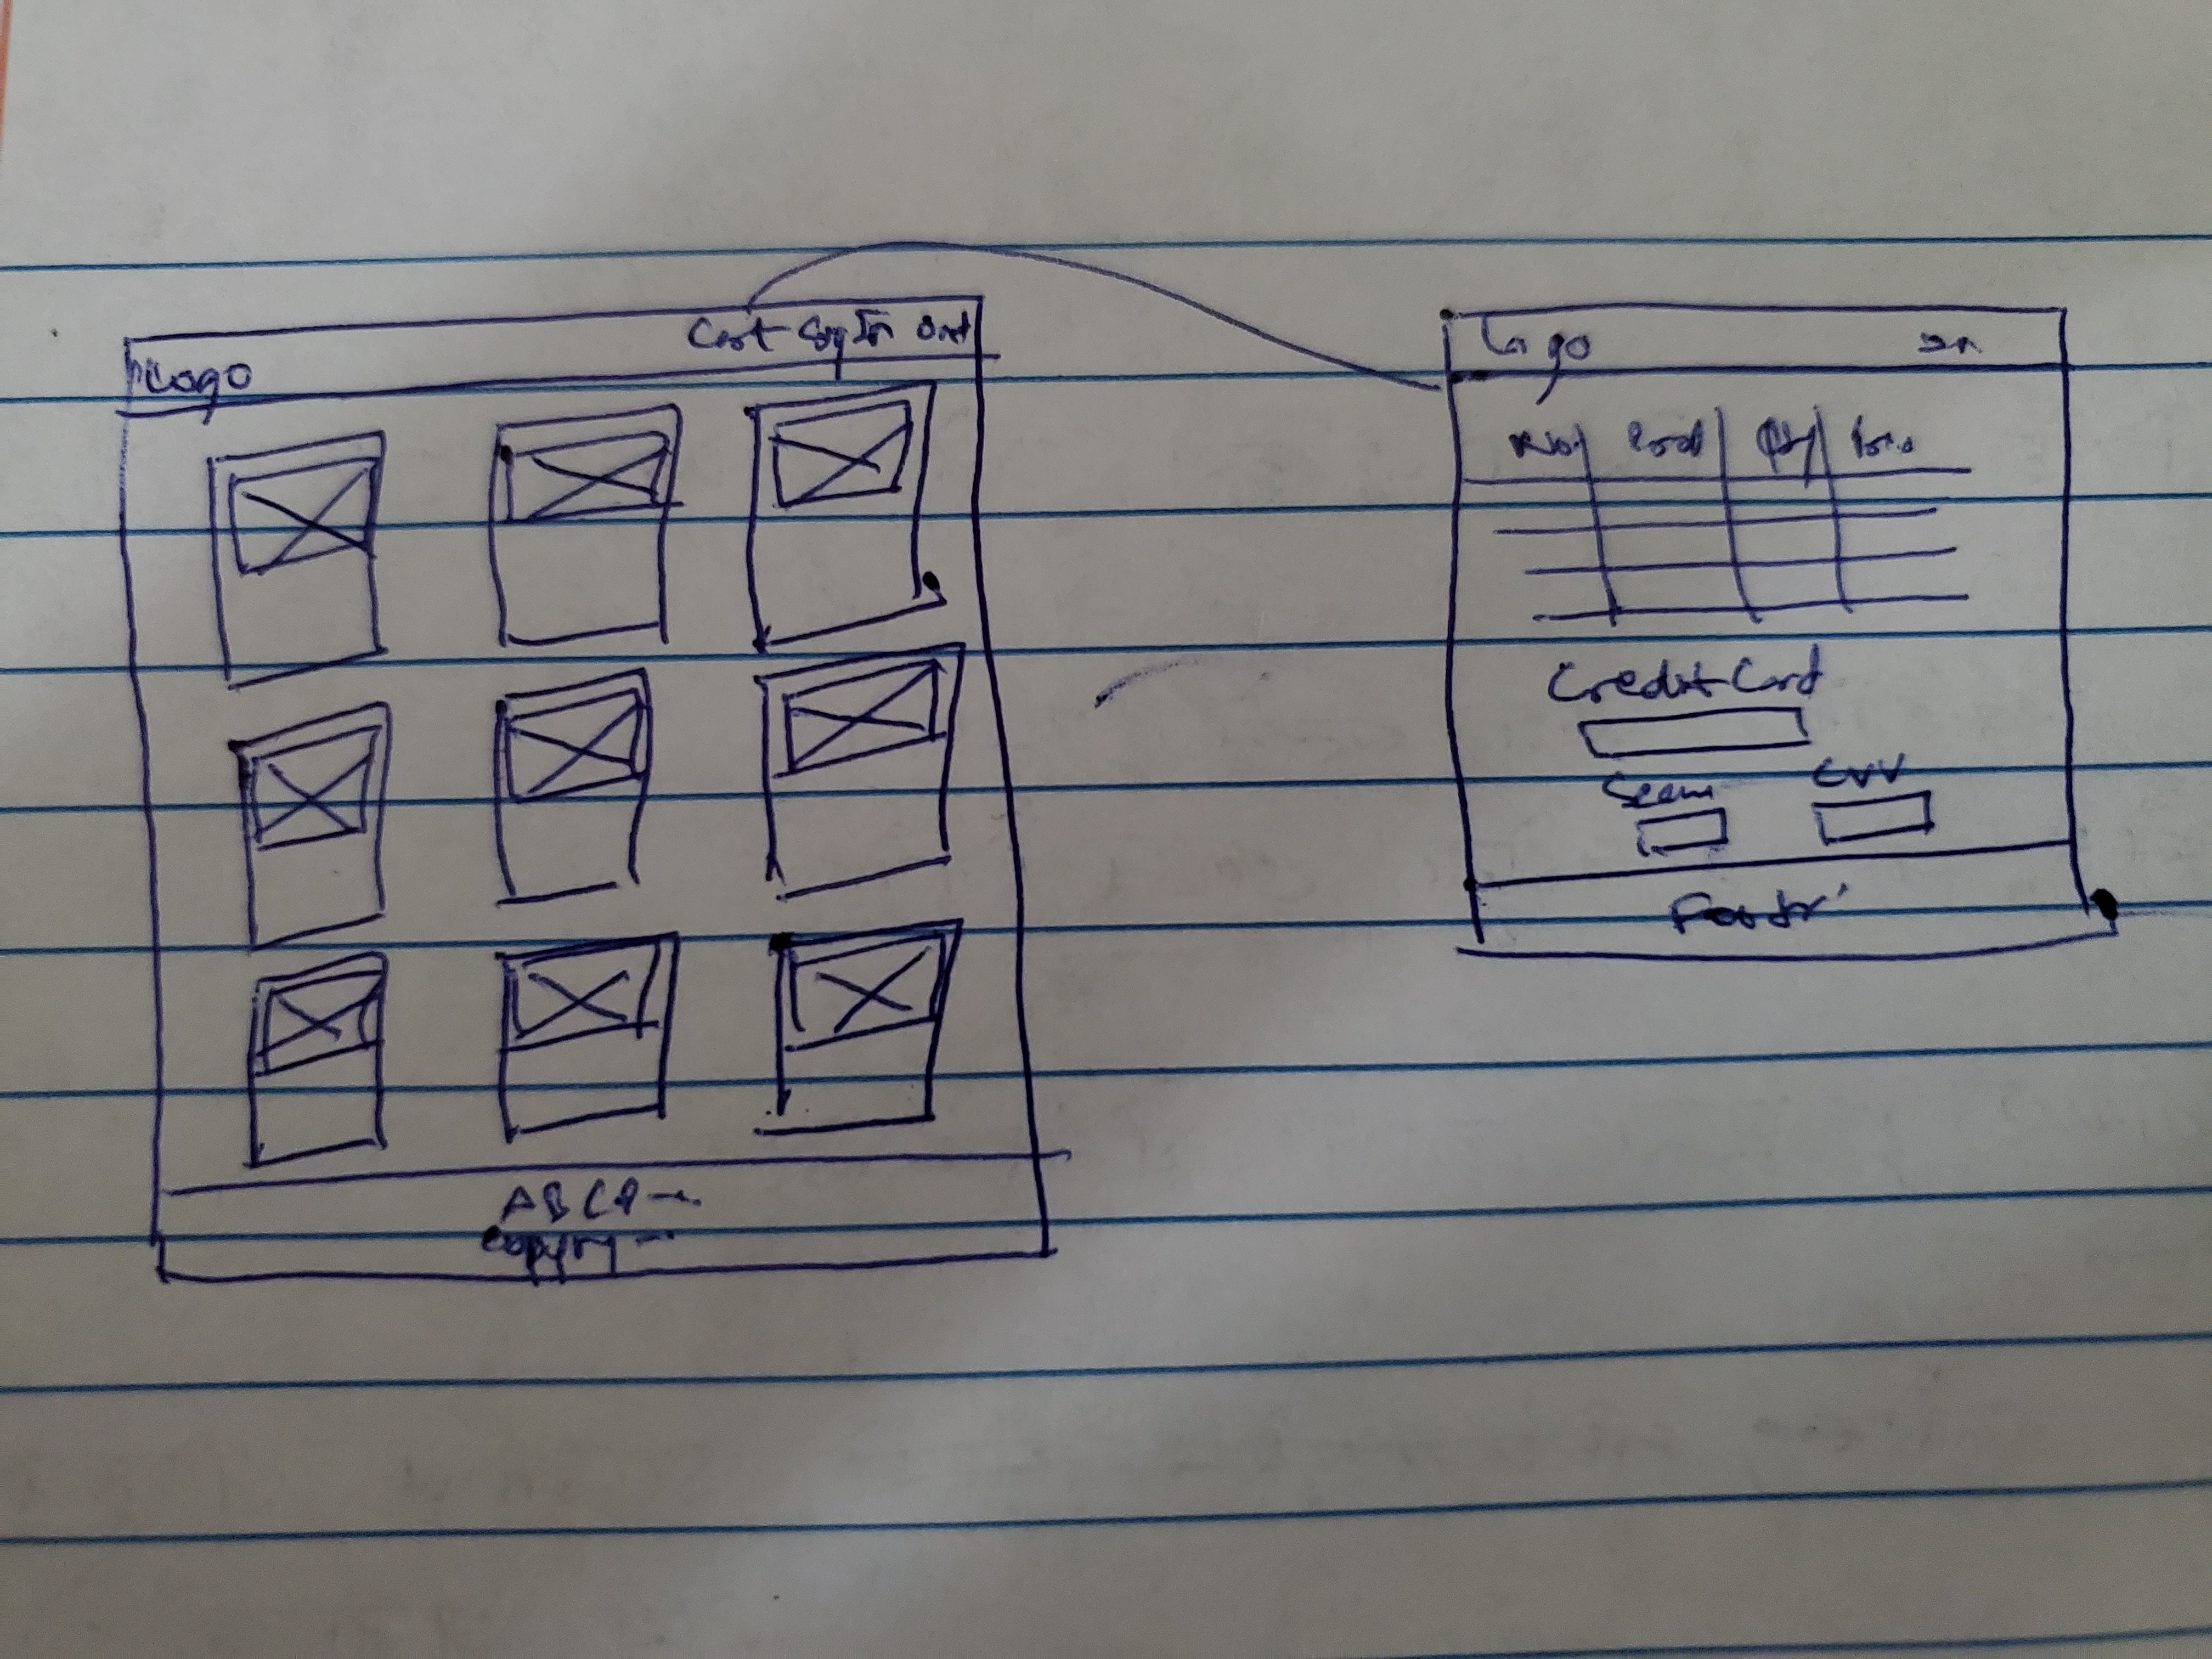 Logo
Cart Sign In Out
ABCD
Copyry
Logo
No. Prod Qty
Credit Card
CVV
Footer